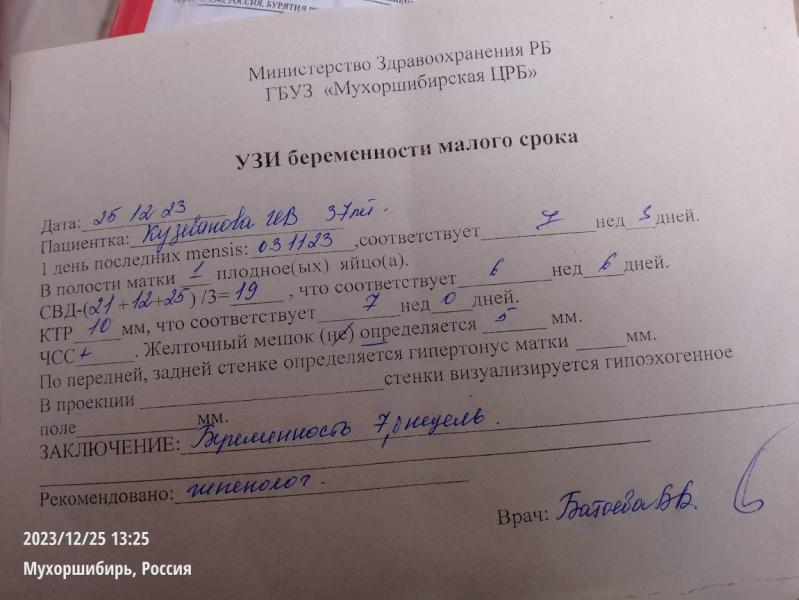 РОССИЯ, БУРЯТИЯ
Министерство Здравоохранения РБ
ГБУЗ «Мухоршибирская ЦРБ»
УЗИ беременности малого срока
Дата: 25 12 23
Пациентка: 37 лет.
1 день последних mensis: 03 11 23, соответствует 7 нед 3 дней.
В полости матки 1 плодное(ых) яйцо(а).
СВД-(21+12+25) /3= 19, что соответствует 6 нед 6 дней.
КТР 10 мм, что соответствует 7 нед 0 дней.
ЧСС + . Желточный мешок (не) определяется 5 мм.
По передней, задней стенке определяется гипертонус матки мм.
В проекции стенки визуализируется гипоэхогенное
поле мм.
ЗАКЛЮЧЕНИЕ: Беременность 7,0 недель.
Рекомендовано:
Врач: Батоева В.В.
2023/12/25 13:25
Мухоршибирь, Россия